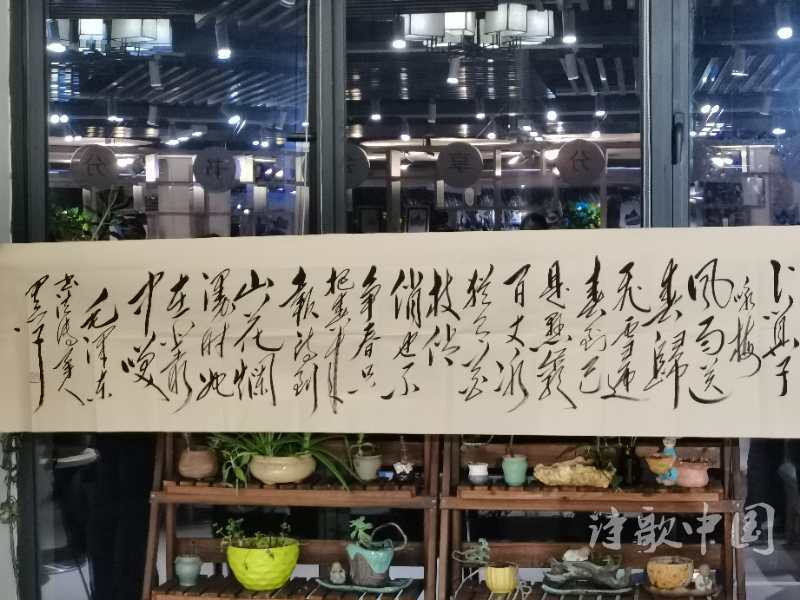 卜算子
咏梅
风雨送
春歸
飞雪迎
春到已
是懸崖
百丈冰
犹有花
枝俏
俏也不
争春只
把春来
報待到
山花爛
漫时她
在丛
中笑
毛泽东
书法传承人
分
书
享
分
诗歌中国